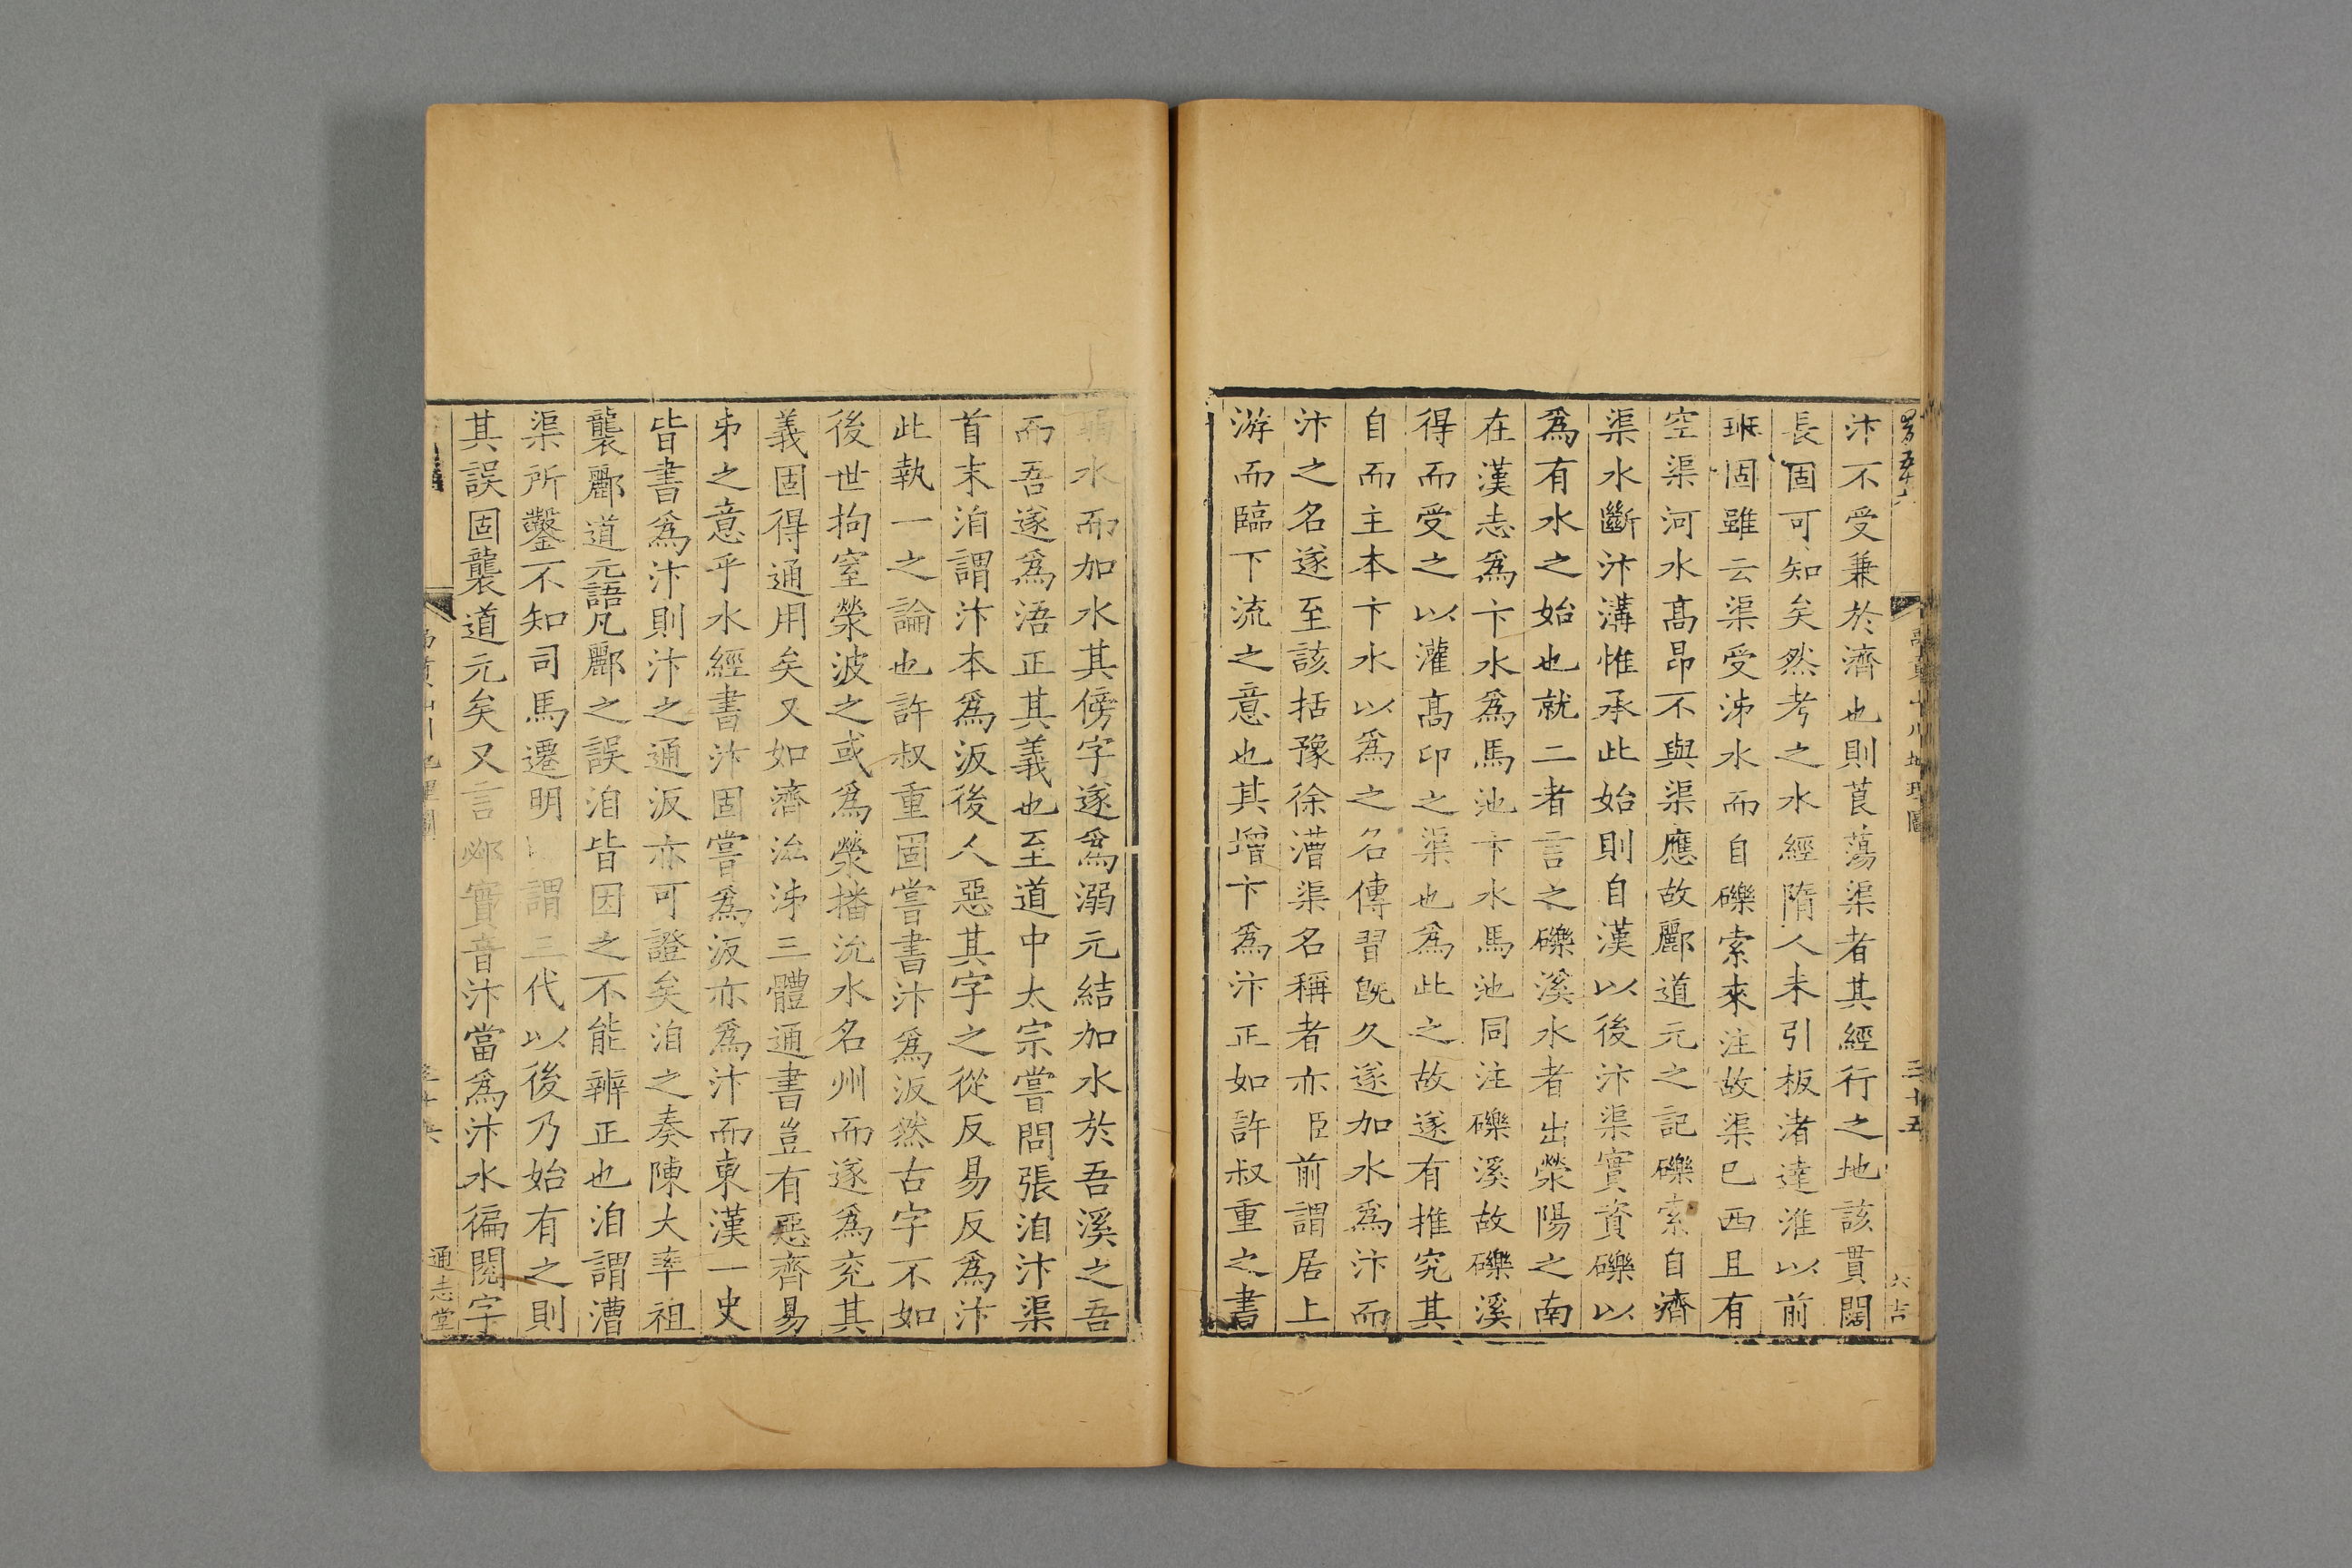 禹貢山川地理圖 三十五
汴不受兼於濟也則莨蕩渠者其經行之地該貫闊
長固可知矣然考之水經隋人未引板渚達淮以前
班固雖云渠受泲水而自礫索來注故渠已西且有
空渠河水高昂不與渠應故酈道元之記礫索自濟
渠水斷汴溝惟承此始則自漢以後汴渠實資礫以
爲有水之始也就二者言之礫溪水者出滎陽之南
在漢志爲卞水爲馬池卞水馬池同注礫溪故礫溪
得而受之以灌高卬之渠也爲此之故遂有推究其
自而主本卞水以爲之名傳習旣久遂加水爲汴而
汴之名遂至該括豫徐漕渠名稱者亦臣前謂居上
游而臨下流之意也其增卞爲汴正如許叔重之書
弱水而加水其傍字遂爲溺元結加水於吾溪之吾
而吾遂爲浯正其義也至道中太宗嘗問張洎汴渠
首末洎謂汴本爲汳後人惡其字之從反易反爲汴
此執一之論也許叔重固嘗書汴爲汳然古字不如
後世拘窒滎波之或爲滎播沇水名州而遂爲兖其
義固得通用矣又如濟泲泲三體通書豈有惡齊易
𠂔之意乎水經書汴固嘗爲汳亦爲汴而東漢一史
皆書爲汴則汴之通汳亦可證矣洎之奏陳大率祖
襲酈道元語凡酈之誤洎皆因之不能辨正也洎謂漕
渠所鑿不知司馬遷明謂三代以後乃始有之則
其誤固襲道元矣又言邲實音汴當爲汴水徧閱字
禹貢山川地理圖
通志堂